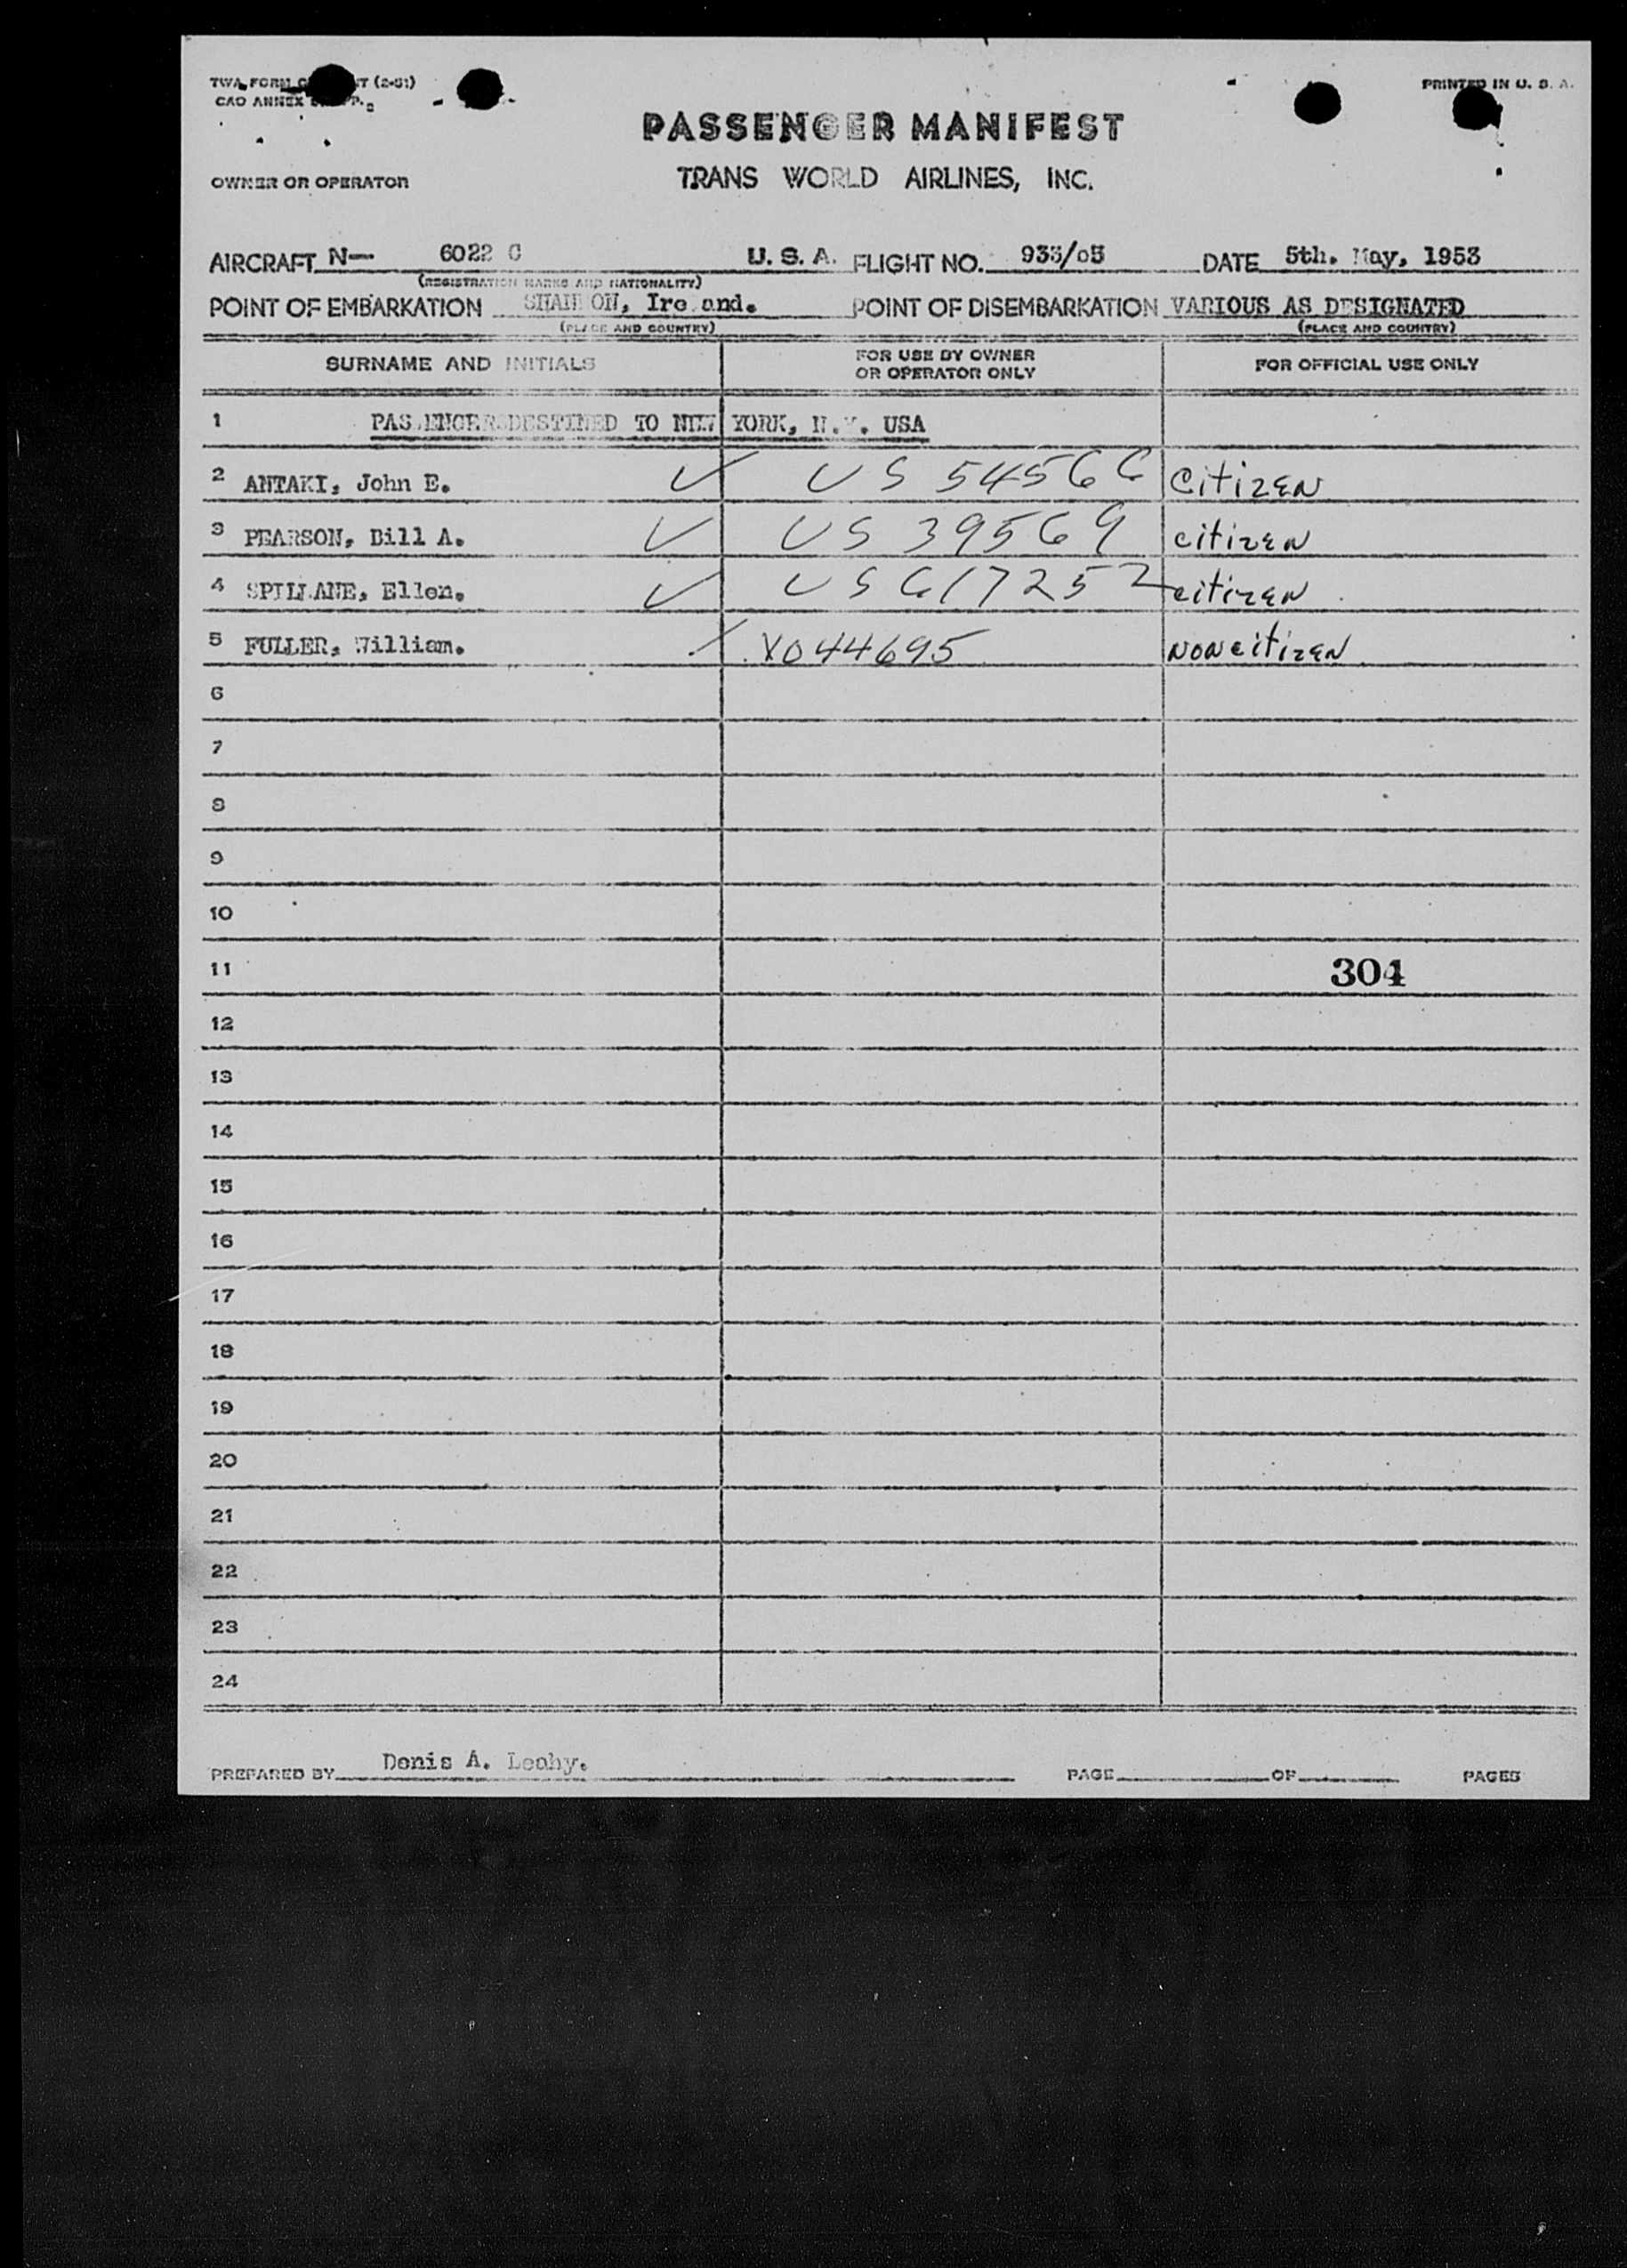 TWA FORM (2-51)
CAO ANNEX
PRINTED IN U. S. A.
PASSENGER MANIFEST
OWNER OR OPERATOR
TRANS WORLD AIRLINES, INC.
AIRCRAFT N— 6022 C U. S. A. FLIGHT NO. DATE 5th. May, 1953
(REGISTRATION MARKS AND NATIONALITY)
POINT OF EMBARKATION SHANNON, Ireland. POINT OF DISEMBARKATION VARIOUS AS DESIGNATED
(PLACE AND COUNTRY) (PLACE AND COUNTRY)
SURNAME AND INITIALS
FOR USE BY OWNER
OR OPERATOR ONLY
FOR OFFICIAL USE ONLY
1 PASSENGERS DESTINED TO NEW YORK, N.Y. USA
2 ANTAKI, John E. ✓ US 54566 Citizen
3 PEARSON, Bill A. ✓ US 39569 citizen
4 SPILLANE, Ellen. ✓ US 617252 citizen
5 FULLER, William. ✓ X044695 noncitizen
6
7
8
9
10
11 304
12
13
14
15
16
17
18
19
20
21
22
23
24
PREPARED BY Denis A. Leahy. PAGE OF PAGES